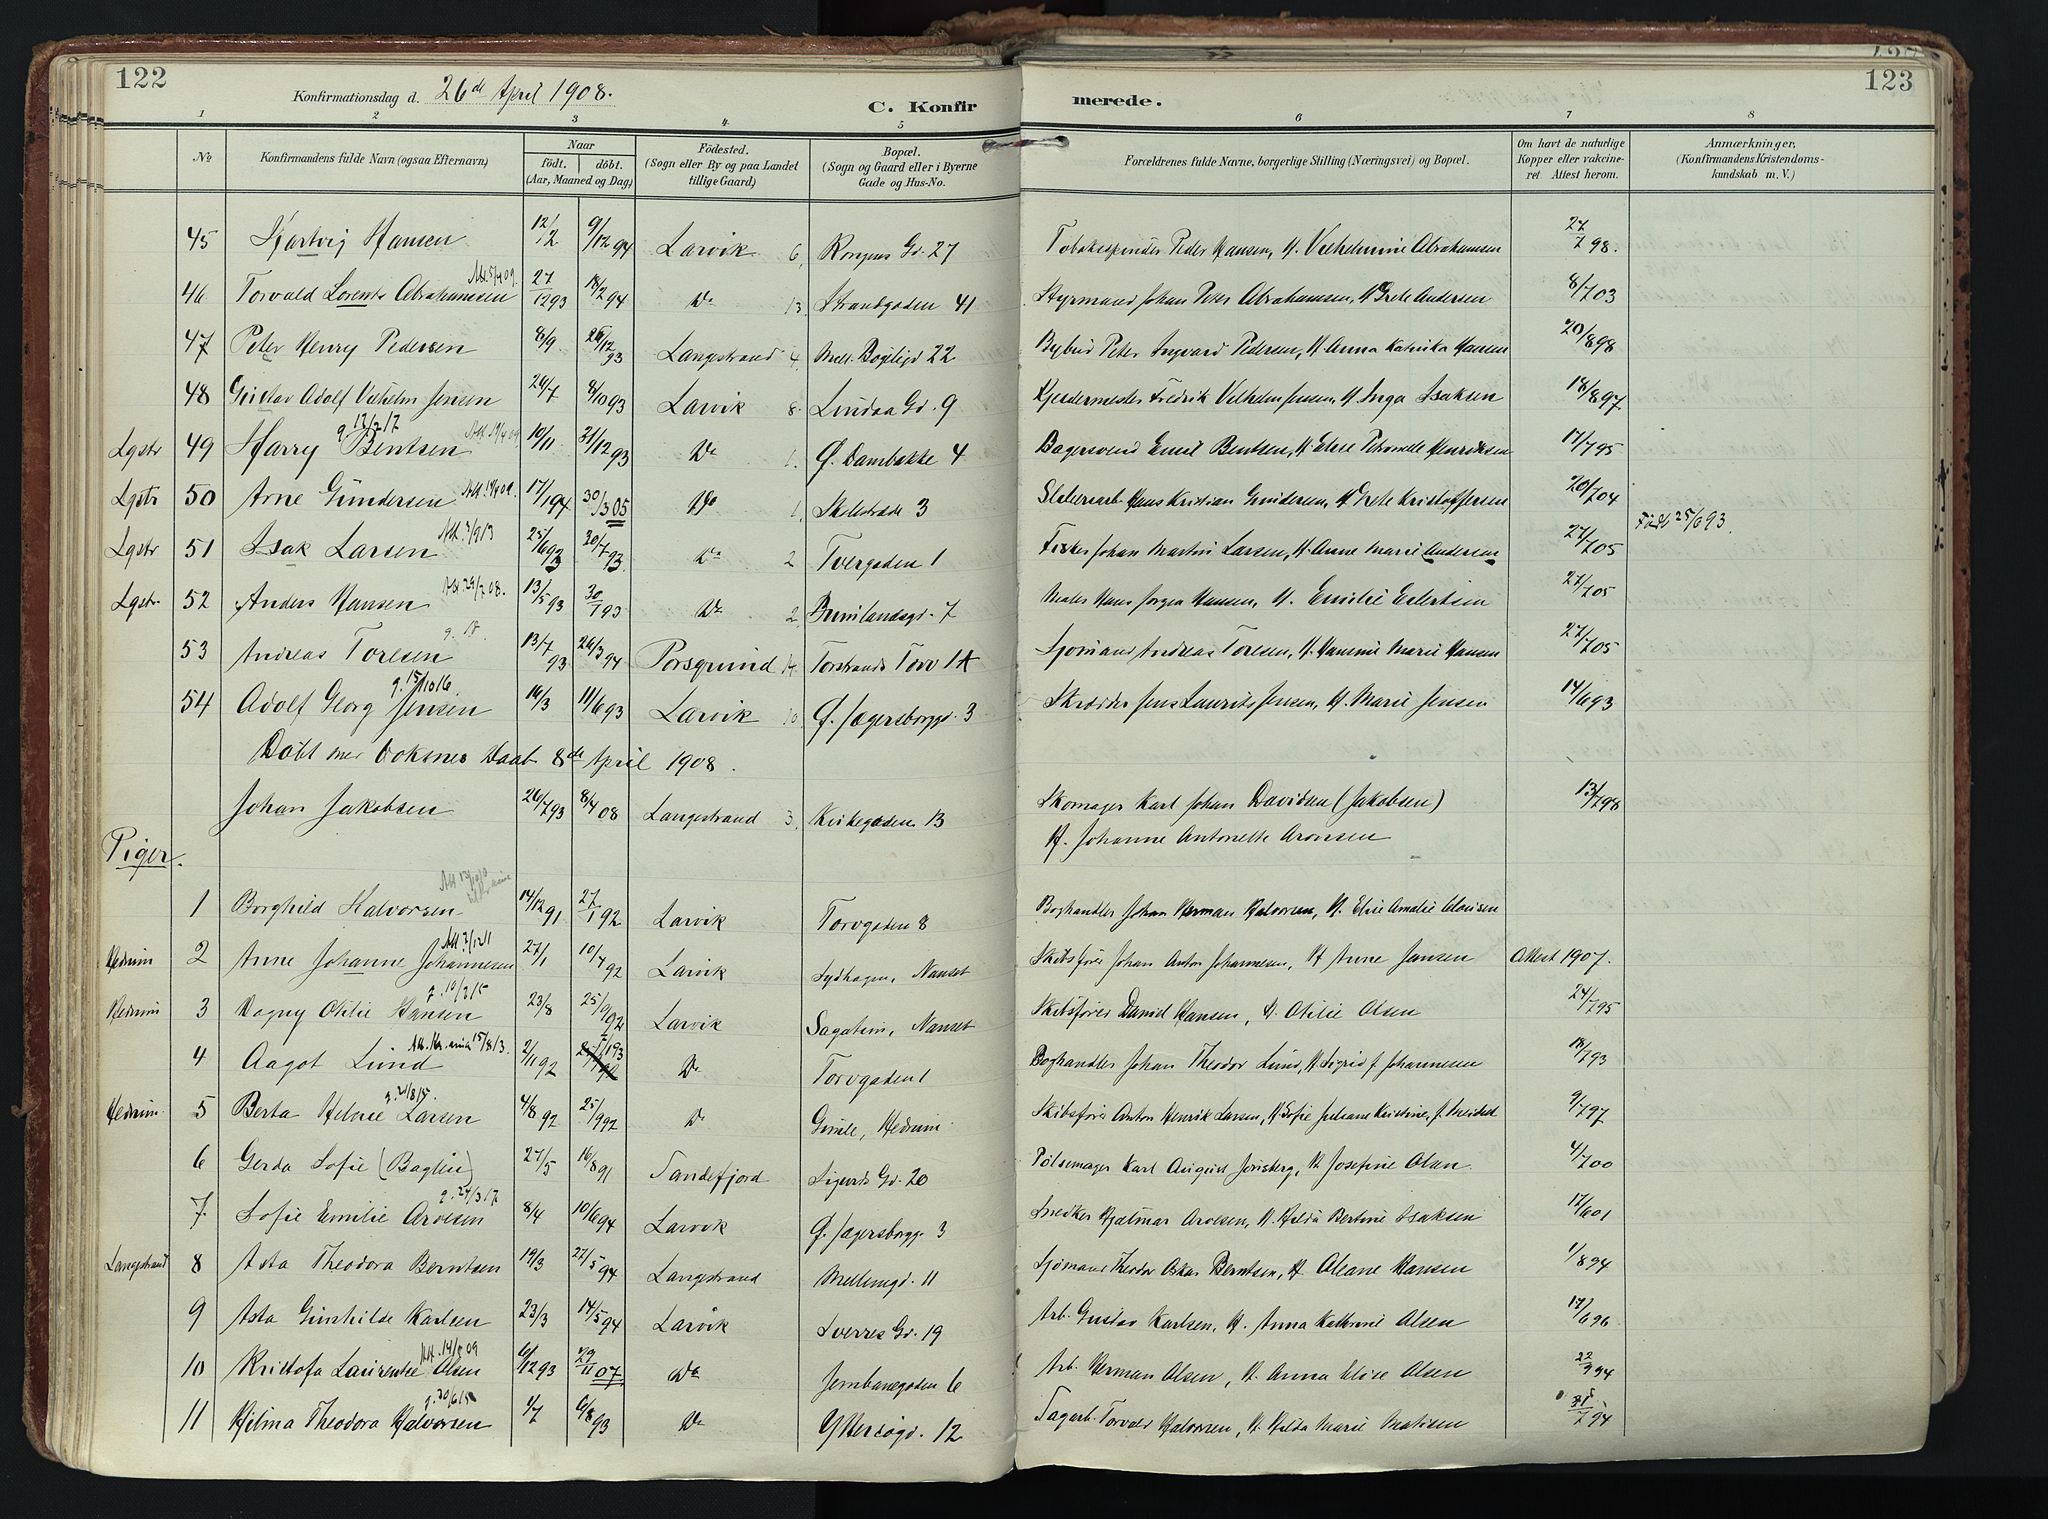 122
Konfirmationsdag d. 26de April 1908.
C. Konfirmerede.
123
1 2 3 4 5 6 7 8
No
Konfirmandens fulde Navn (ogsaa Efternavn)
Naar født. døbt. (Aar, Maaned og Dag)
Fødested. (Sogn eller By og paa Landet tillige Gaard)
Bopæl. (Sogn og Gaard eller i Byerne Gade og Hus-No.
Forældrenes fulde Navne, borgerlige Stilling (Næringsvei) og Bopæl.
Om havt de naturlige Kopper eller vakcineret. Attest herom.
Anmærkninger. (Konfirmandens Kristendomskundskab m. V.)
45 Hartvig Hansen 12/12 9/12 94 Larvik 6, Kongens Gd. 27 Tobaksspinder Peder Hansen, H. Vilhelmine Abrahamsen 27/7 98.
46 Torvald Lorents Abrahamsen 27/12 93 18/2 94 Do 13. Strandgaden 41 Styrmand Johan Peter Abrahamsen, H. Grete Andersen 8/7 03
47 Peter Henry Pedersen 8/9 26/12 93 Langestrand 4, Mell. Bøgligd 22 Bybud Peter Ingvard Pedersen, H. Anna Katrika Hansen 20/8 98
48 Gustav Adolf Vilhelm Jensen 26/7 8/10 93 Larvik 8. Lindaa Gd. 9 Fredrik Vilhelm Jensen, H. Inga Isaksen 18/8 97
Lgstr 49 Harry Bentsen g. 12/2 17 Att 19/4 09 10/11 31/12 93 Do 1. Ø. Dambakke 4 Bagersvend Emil Bentsen, H. Petronelle Henriksen 17/7 95
Lgstr 50 Arne Gundersen 17/1 94 30/3 05 Do 1, Skolestræde 3 Hans Kristian Gundersen, H. Grete Kristoffersen 20/7 04
Lgstr 51 Isak Larsen Att. 3/9 13 25/6 93 30/7 93. Do 2 Tvergaden 1 Fisker Johan Martin Larsen, H. Anne Marie Andersen 27/7 05 Født 25/6 93.
Lgstr. 52 Anders Hansen Att 29/7 08. 13/5 93 30/7 93 Do 2, 7 Maler Hans Jørgen Hansen, H. Emilie Eilertsen 27/7 05
53 Andreas Toresen g. 18. 13/7 93 26/3 94 Porsgrund 14 Torstrands Torv 1A Sjømand Andreas Toresen, H. Hannie Marie Hansen 27/7 05
54 Adolf Georg Jensen g. 15/10 16. 16/3 11/6 93 Larvik 10 Ø. Jægersborggd. 3 Skrædder Jens Laurits Jensen, H. Marie Jensen 14/6 93
Døbt med Voksnes Daab 8de April 1908.
Johan Jakobsen 26/7 93 8/4 08 Langestrand 3, Kirkegaden 13 Skomager Karl Johan Davidsen (Jakobsen) 13/7 98
H. Johanne Antonette Aronsen
Piger.
1 Borghild Halvorsen 14/12 91 27/1 92 Larvik Torvgaden 8 Boghandler Johan Herman Halvorsen, H. Elise Amalie Clausen
Hedrum 2 Anne Johanne Johannesen Att 2/12 11 27/1 10/4 92 Larvik Sydhagen, Nanset Skibsfører Johan Anton Johannesen, H Anne Jansen Attest 1907.
Hedrum 3 Dagny Otilie Hansen g. 10/2 15 23/8 25/9 92 Larvik Sagatun, Nanset Skibsfører Daniel Hansen, H. Otilie Olsen 24/7 95
4 Aagot Lund 15/8 13. 2/11 92 Do Torvgaden 1 Boghandler Johan Theodor Lund, H. Sigrid f. Johannesen 18/7 93
Hedrum 5 Berta Helene Larsen g. 21/8 15. 4/8 92 25/9 92 Do Gimle, Hedrum. Skibsfører Anton Henrik Larsen, H. Sofie Juliane Kristine, f. Meidell 9/7 97
6 Gerda Sofie (Baglin) 27/5 16/8 91 Sandefjord Sigurds Gd. 20 Pølsemager Karl August Jonsberg, H. Josefine Olsen. 4/7 00
7. Sofie Emilie Arvesen g. 24/3 17 8/4 10/6 94 Larvik Ø. Jægersborgg. 3 Snedker Hjalmar Arvesen, H. Hilda Bertine Isaksen 17/6 01
Langestrand 8 Asta Theodora Berntsen 19/3 27/5 94 Langestrand Mellemgd. 11 Sjømand Theodor Oskar Berntsen, H. Oleane Hansen 1/8 94
9 Asta Gunhilde Karlsen 23/3 14/5 94 Larvik Sverres Gd. 19 Arb. Gustav Karlsen, H. Anna Kathrine Olsen 17/6 96
10 Kristofa Laurentse Olsen 6/12 93 29/11 07. Do Jernbanegaden 6 Arb. Herman Olsen, H. Anna Elise Olsen 22/9 94
11 Hilma Theodora Halvorsen g. 20/6 15 1/7 6/8 93 Do Yttersøgd. 12 Sagarb. Torvald Halvorsen, H. Hilda Marie Matisen 31/7 94